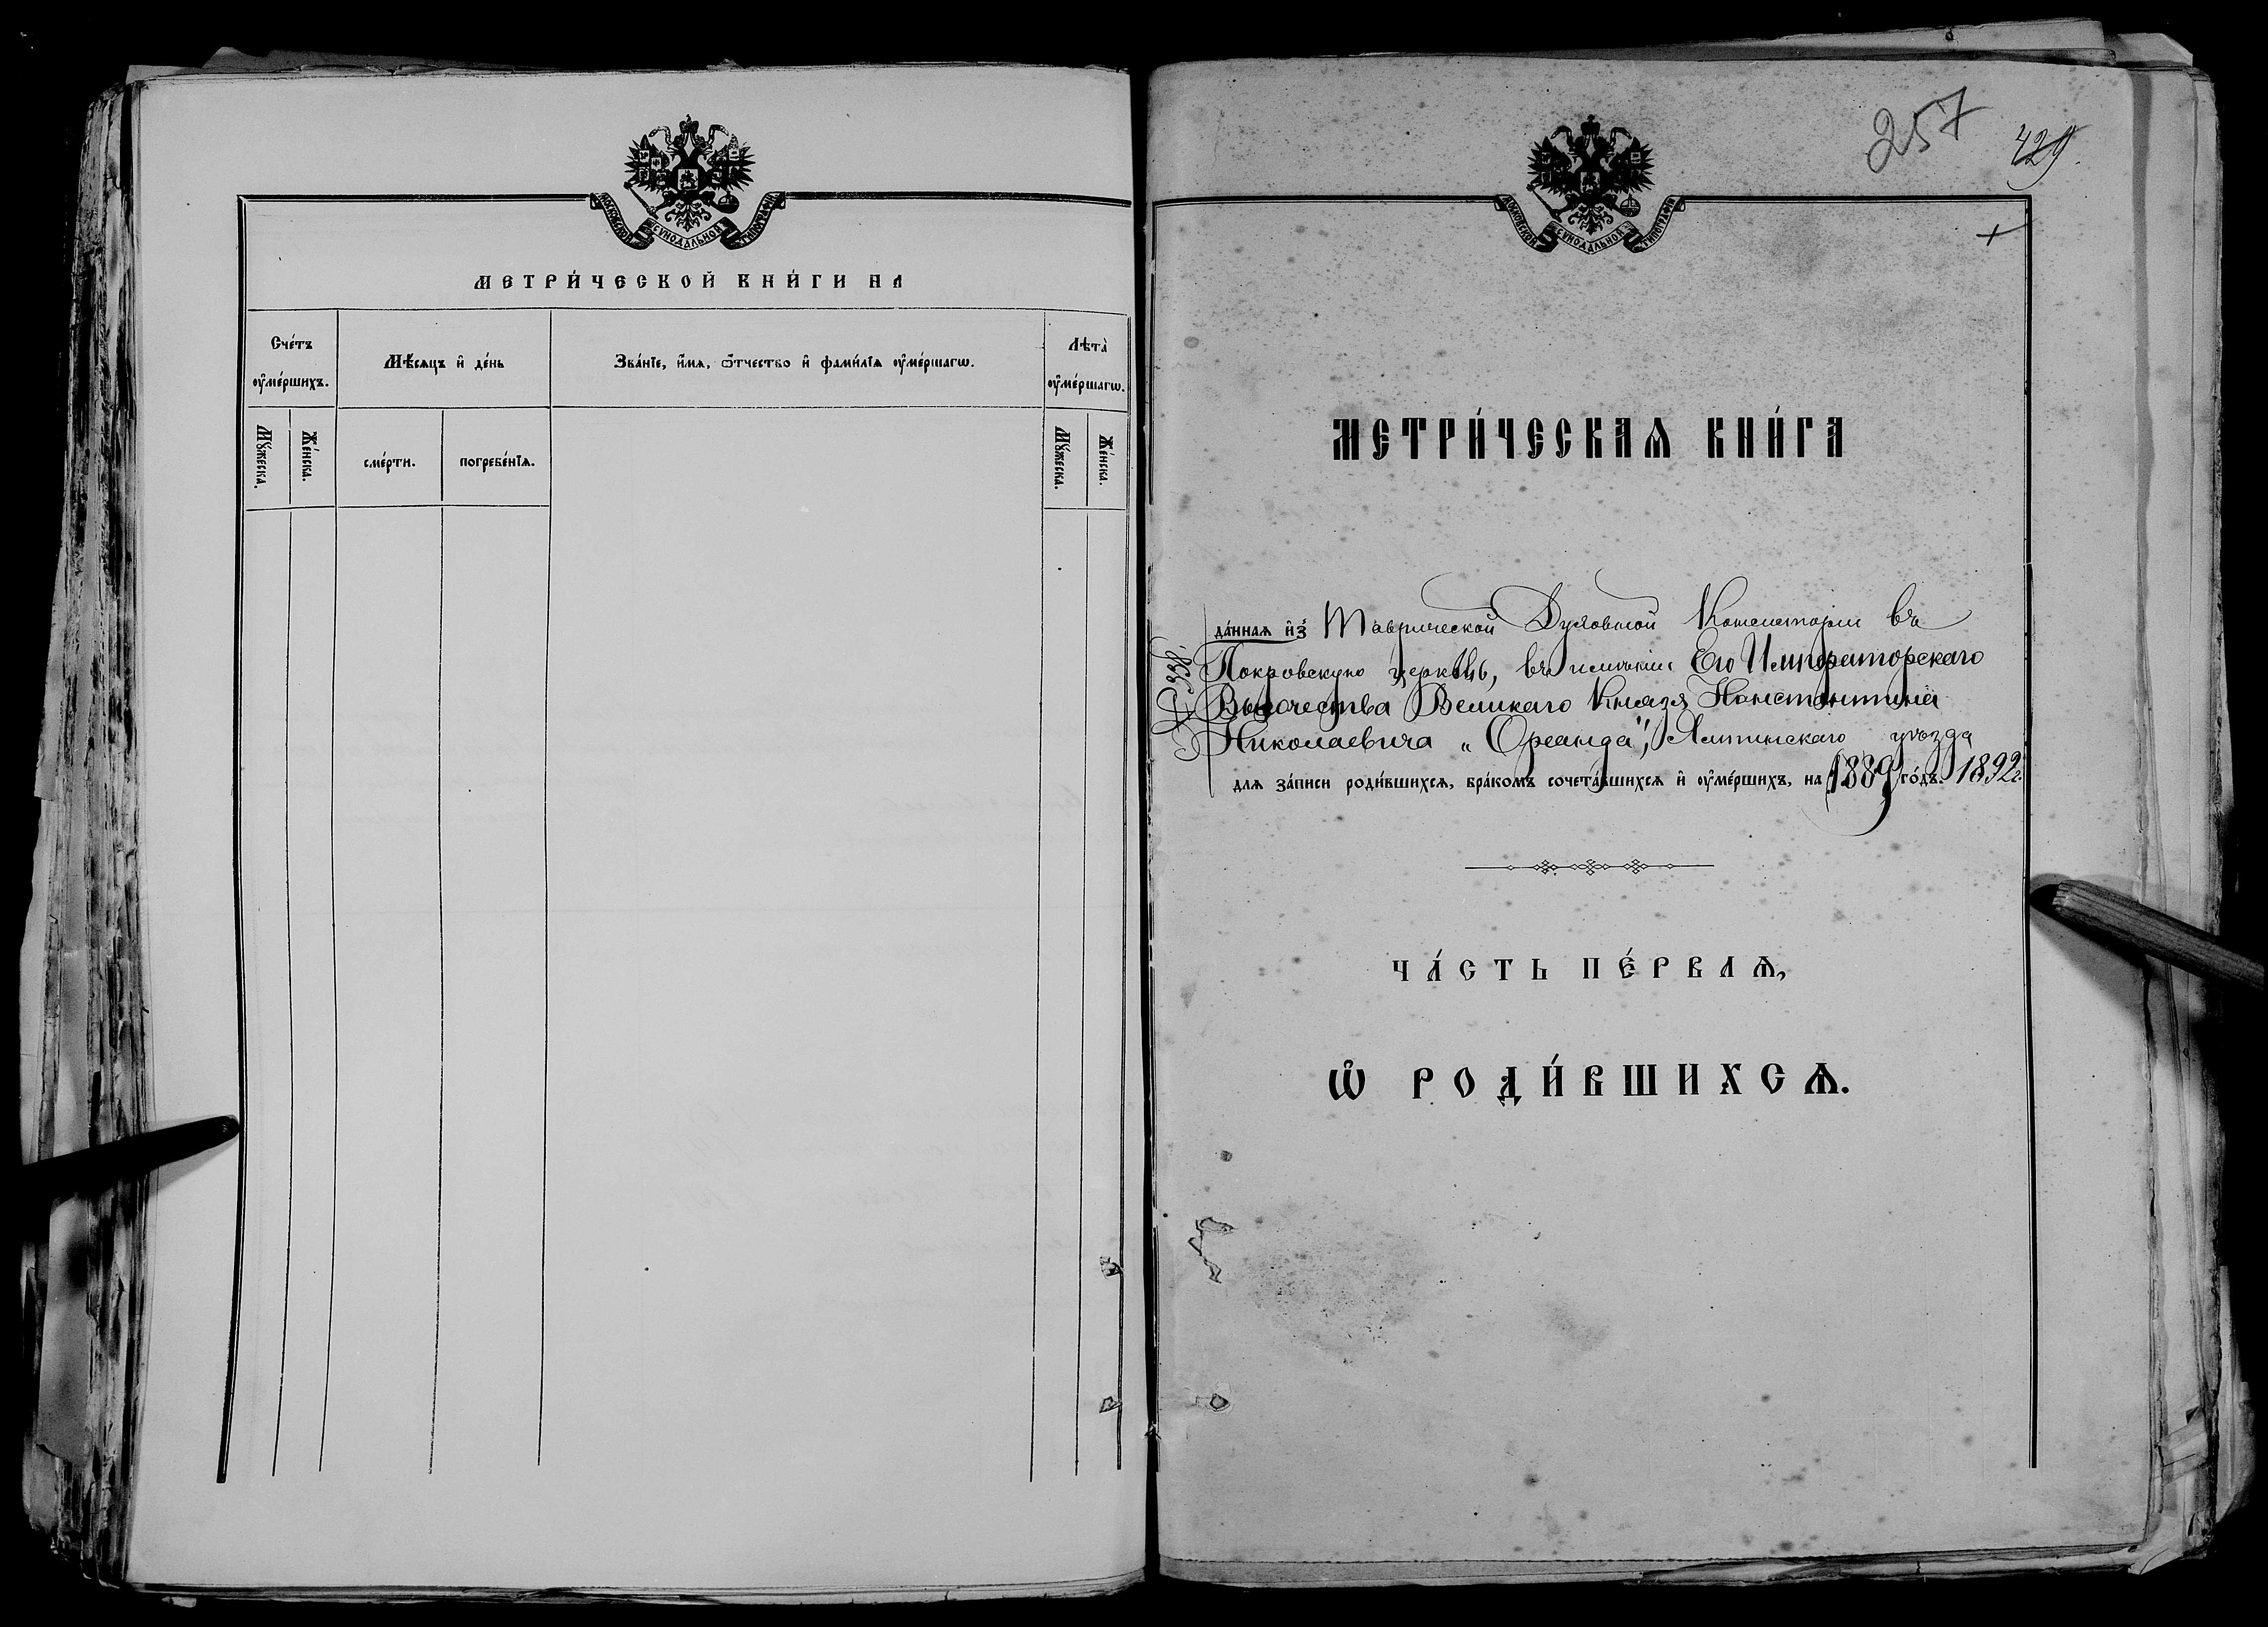 МОСКОВСКОЙ СѴНОДАЛЬНОЙ ТИПОГРАФІИ
МЕТРИ́ЧЕСКОЙ КНИ́ГИ НА
Сче́тъ ᲂу҆ме́ршихъ.
Мѣ́сяцъ и҆ де́нь
Зва́нїе, и҆́мѧ, ѻ҆́тчество и҆ фами́лїѧ ᲂу҆ме́ршагѡ.
Лѣта̀ ᲂу҆ме́ршагѡ.
Мꙋ́жеска.
Же́нска.
сме́рти.
погребе́нїѧ.
Мꙋ́жеска.
Же́нска.
257
429.
МОСКОВСКОЙ СѴНОДАЛЬНОЙ ТИПОГРАФІИ
МЕТРИ́ЧЕСКАѦ КНИ́ГА
да́ннаѧ и҆з̾ Таврической Духовной Консисторіи въ
Покровскую церковь, въ имѣніи Его Императорскаго
Высочества Великаго Князя Константина
Николаевича „Ореанда", Ялтинскаго уѣзда
длѧ за́писи роди́вшихсѧ, бра́комъ сочета́вшихсѧ и҆ ᲂу҆ме́ршихъ, на 1889 го́дъ. 1892 г.
№ 338.
ЧА́СТЬ ПЕ́РВАѦ,
Ѡ҆ РОДИ́ВШИХСѦ.